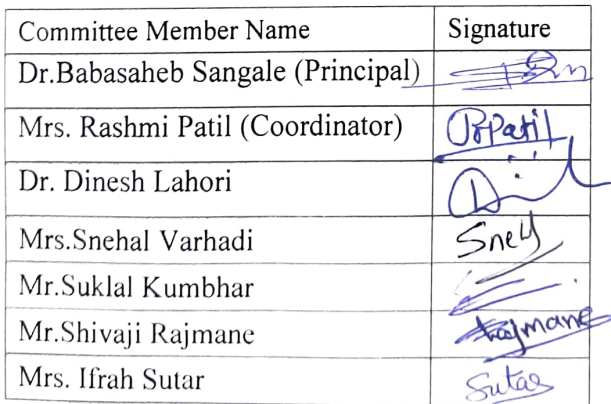 Committee Member Name Signature
Dr.Babasaheb Sangale (Principal)
Mrs. Rashmi Patil (Coordinator) RPatil
Dr. Dinesh Lahori
Mrs.Snehal Varhadi Snely
Mr.Suklal Kumbhar
Mr.Shivaji Rajmane Rajmane
Mrs. Ifrah Sutar Sutar